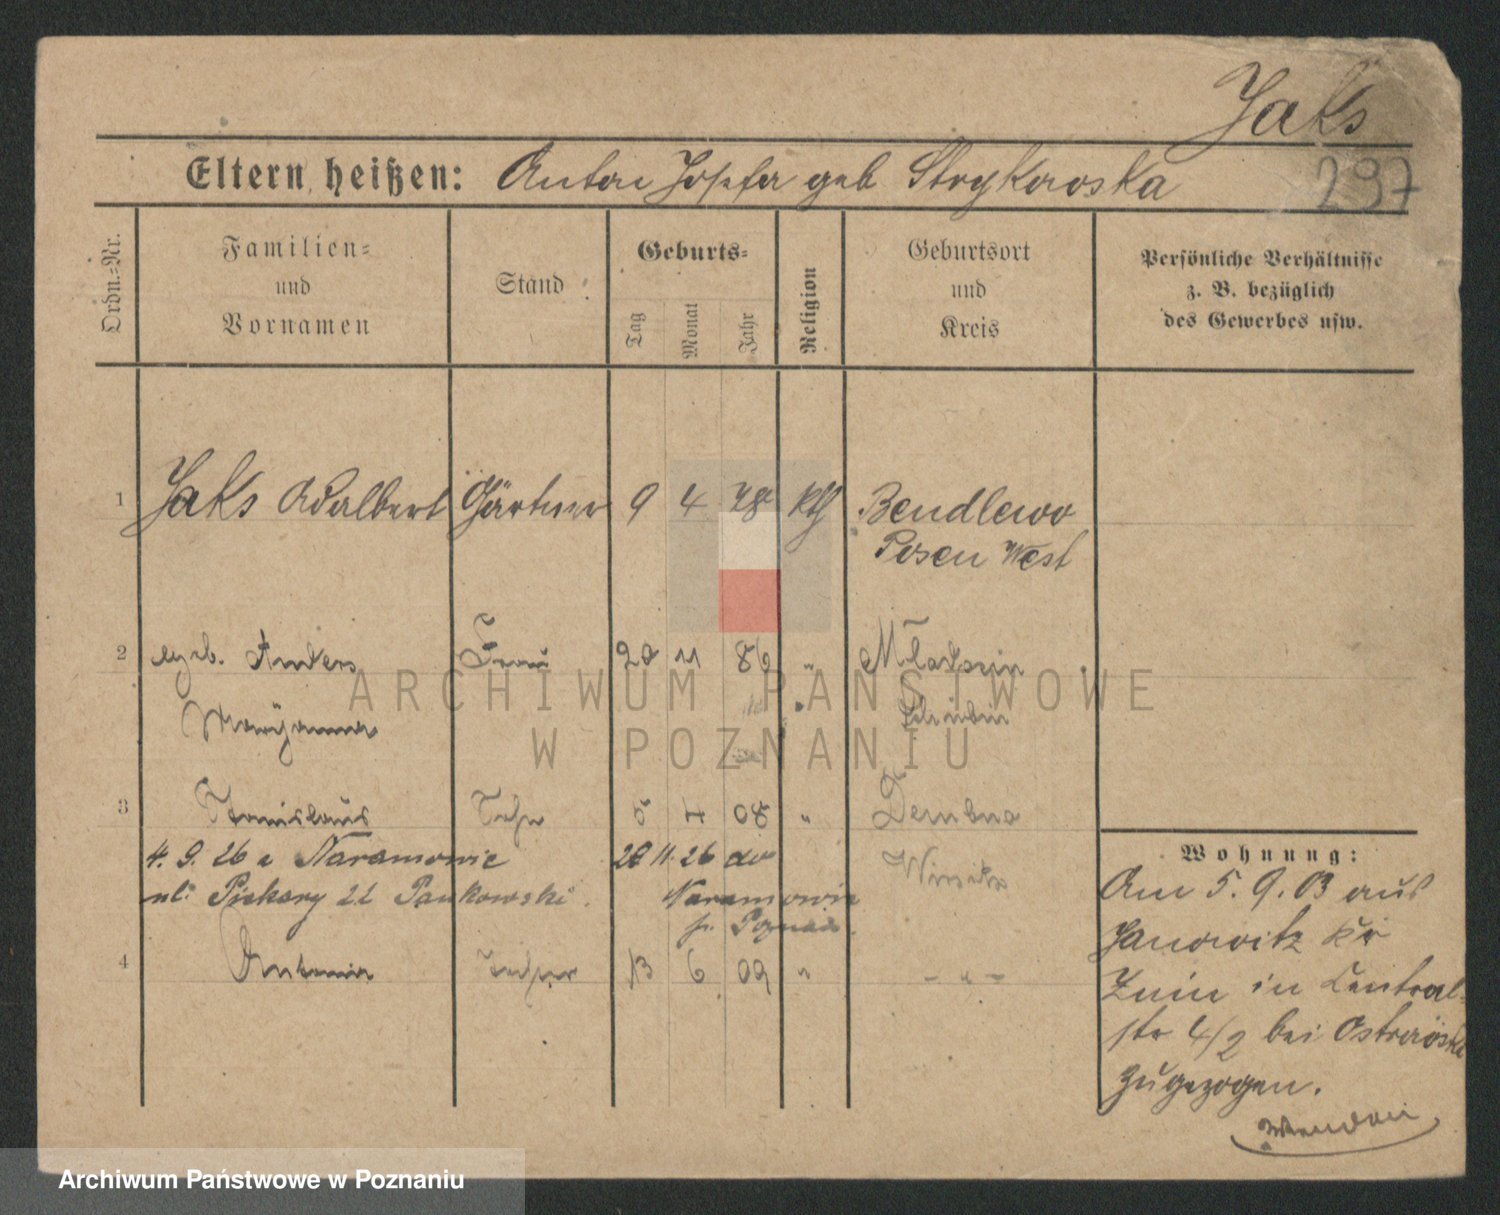 Jaks
Eltern heißen: Anton Josefa geb Strykowska
297
Ordn.=Nr.
Familien=
und
Vornamen
Stand
Geburts=
Tag
Monat
Jahr
Religion
Geburtsort
und
Kreis
Persönliche Verhältnisse
z. B. bezüglich
des Gewerbes usw.
1 Jaks Adalbert Gärtner 9 4 78 kth Bendlewo
Posen West
2 geb. Anders Frau 20 11 86 "
Maryanna Schubin
3 Stanislaus Sohn 5 4 08 " Dembno
4. 9. 26 a Naramowic 28 11. 26 do
ul. Piekary 22 Pankowski.
Naramowic
p. Poznań.
Wirsitz
4 Antonia 13 6 09 " - " -
Wohnung:
Am 5. 9. 03 aus
Janowitz Kr
Znin in Central-
str 4/2 bei
zugezogen.
ARCHIWUM PAŃSTWOWE
W POZNANIU
Archiwum Państwowe w Poznaniu